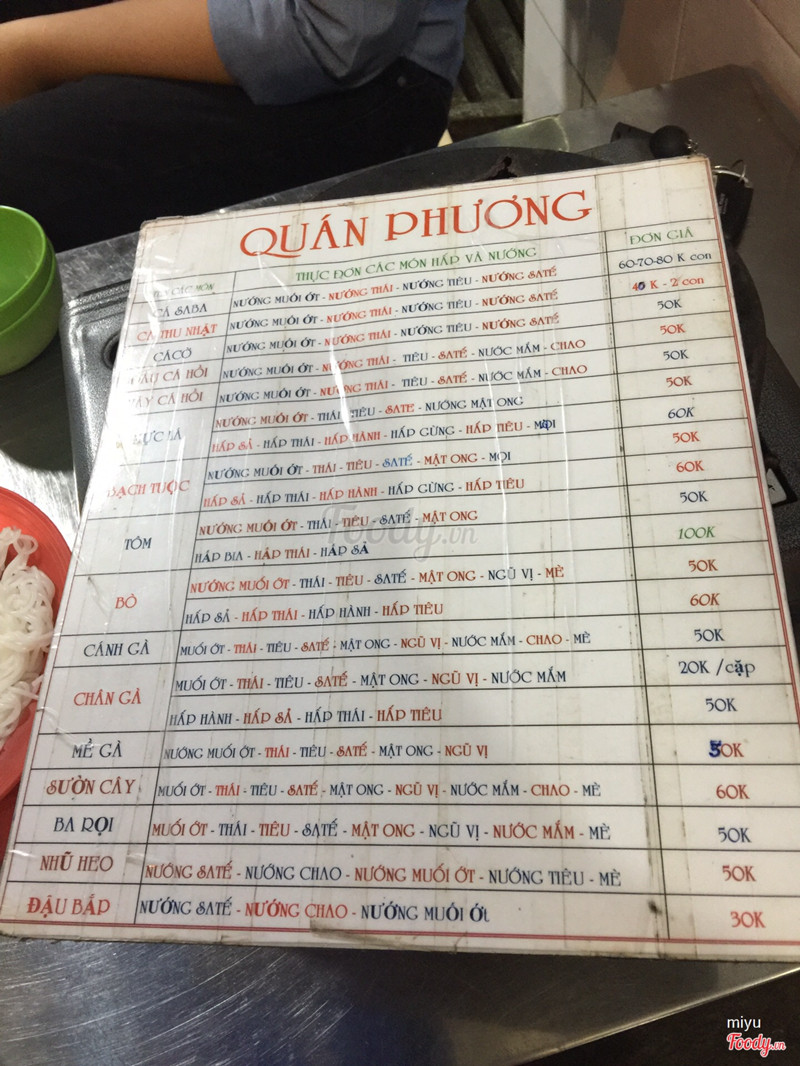 QUÁN PHƯƠNG
TÊN CÁC MÓN THỰC ĐƠN CÁC MÓN HẤP VÀ NƯỚNG ĐƠN GIÁ
CÁ SABA NƯỚNG MUỐI ỚT - NƯỚNG THÁI - NƯỚNG TIÊU - NƯỚNG SATẾ 60-70-80 K con
CÁ THU NHẬT NƯỚNG MUỐI ỚT - NƯỚNG THÁI - NƯỚNG TIÊU - NƯỚNG SATẾ K - 2 con
CÁ CỜ NƯỚNG MUỐI ỚT - NƯỚNG THÁI - NƯỚNG TIÊU - NƯỚNG SATẾ 50K
CÁ HỒI NƯỚNG MUỐI ỚT - NƯỚNG THÁI - TIÊU - SATẾ - NƯỚC MẮM - CHAO 50K
CÁ HỒI NƯỚNG MUỐI ỚT - NƯỚNG THÁI - TIÊU - SATẾ - NƯỚC MẮM - CHAO 50K
MỰC LÁ NƯỚNG MUỐI ỚT - THÁI - TIÊU - SATẾ - NƯỚNG MẬT ONG 50K
HẤP SẢ - HẤP THÁI - HẤP HÀNH - HẤP GỪNG - HẤP TIÊU - MỌI 60K
BẠCH TUỘC NƯỚNG MUỐI ỚT - THÁI - TIÊU - SATẾ - MẬT ONG - MỌI 50K
HẤP SẢ - HẤP THÁI - HẤP HÀNH - HẤP GỪNG - HẤP TIÊU 60K
TÔM NƯỚNG MUỐI ỚT - THÁI - TIÊU - SATẾ - MẬT ONG 50K
HẤP BIA - HẤP THÁI - HẤP SẢ 100K
BÒ NƯỚNG MUỐI ỚT - THÁI - TIÊU - SATẾ - MẬT ONG - NGŨ VỊ - MÈ 50K
HẤP SẢ - HẤP THÁI - HẤP HÀNH - HẤP TIÊU 60K
CÁNH GÀ MUỐI ỚT - THÁI - TIÊU - SATẾ - MẬT ONG - NGŨ VỊ - NƯỚC MẮM - CHAO - MÈ 50K
CHÂN GÀ MUỐI ỚT - THÁI - TIÊU - SATẾ - MẬT ONG - NGŨ VỊ - NƯỚC MẮM 20K /cặp
HẤP HÀNH - HẤP SẢ - HẤP THÁI - HẤP TIÊU 50K
MỀ GÀ NƯỚNG MUỐI ỚT - THÁI - TIÊU - SATẾ - MẬT ONG - NGŨ VỊ 50K
SƯỜN CÂY MUỐI ỚT - THÁI - TIÊU - SATẾ - MẬT ONG - NGŨ VỊ - NƯỚC MẮM - CHAO - MÈ 60K
BA RỌI MUỐI ỚT - THÁI - TIÊU - SATẾ - MẬT ONG - NGŨ VỊ - NƯỚC MẮM - MÈ 50K
NHŨ HEO NƯỚNG SATẾ - NƯỚNG CHAO - NƯỚNG MUỐI ỚT - NƯỚNG TIÊU - MÈ 50K
ĐẬU BẮP NƯỚNG SATẾ - NƯỚNG CHAO - NƯỚNG MUỐI ỚT 30K
Foody.vn
miyu
Foody.vn